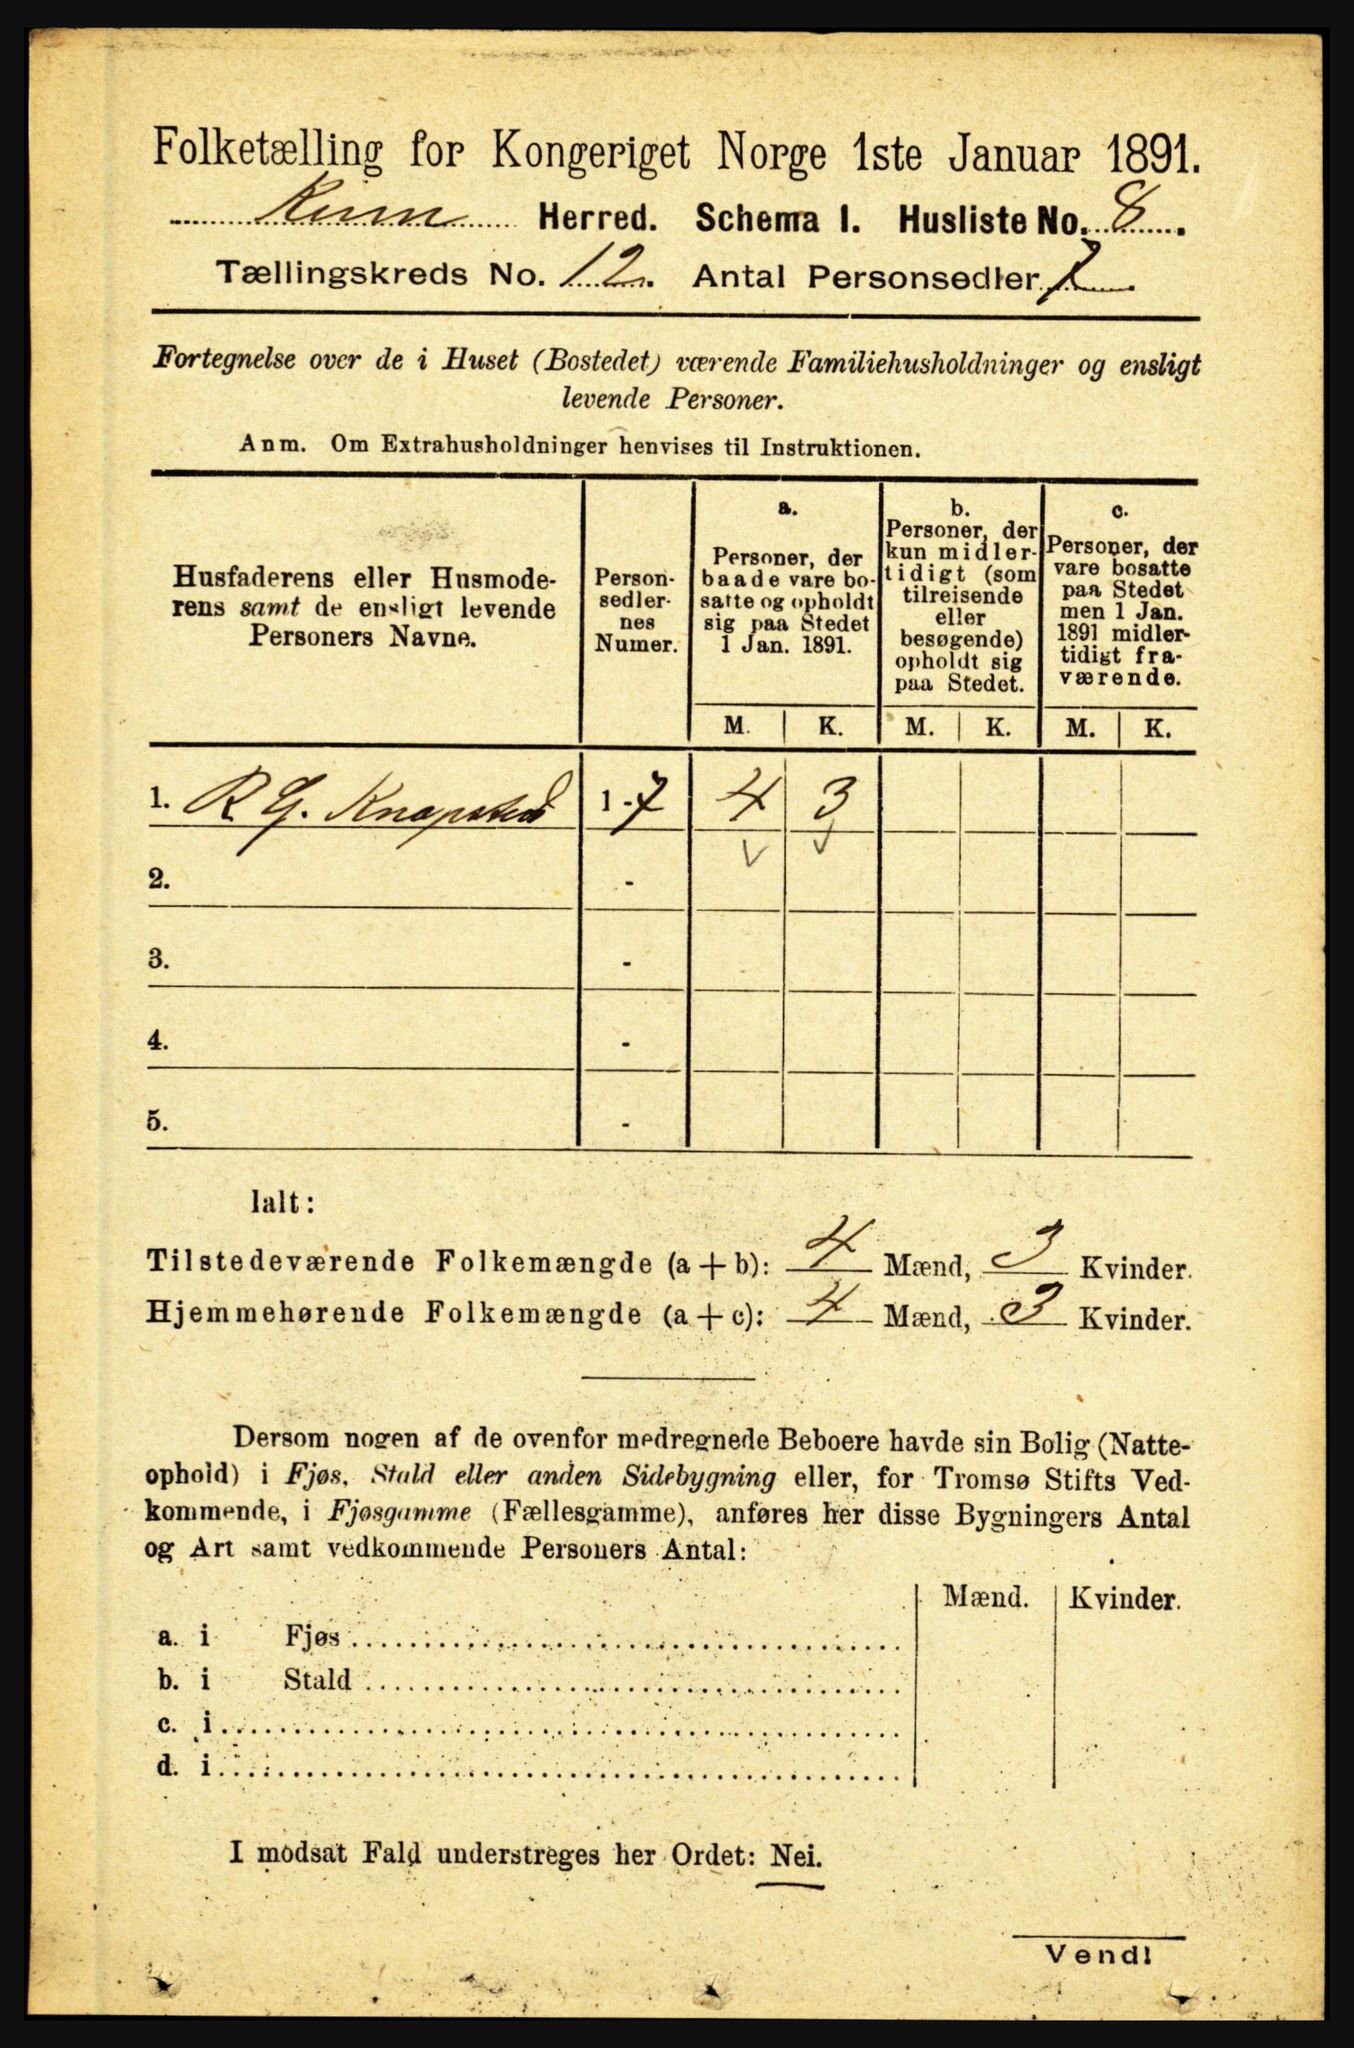 Folketælling for Kongeriget Norge 1ste Januar 1891.
Kinn Herred. Schema I. Husliste No. 8.
Tællingskreds No. 12. Antal Personsedler 7.
Fortegnelse over de i Huset (Bostedet) værende Familiehusholdninger og ensligt
levende Personer.
Anm. Om Extrahusholdninger henvises til Instruktionen.
Husfaderens eller Husmode-
rens samt de ensligt levende
Personers Navne.
Person-
sedler-
nes
Numer.
a.
Personer, der
baade vare bo-
satte og opholdt
sig paa Stedet
1 Jan. 1891.
b.
Personer, der
kun midler-
tidigt (som
tilreisende
eller
besøgende)
opholdt sig
paa Stedet.
c.
Personer, der
vare bosatte
paa Stedet
men 1 Jan.
1891 midler-
tidigt fra-
værende.
M. K. M. K. M. K.
1. R. G. Knapsted 1-7 4 3
2. -
3. -
4. -
5. -
Ialt:
Tilstedeværende Folkemængde (a + b): 4 Mænd, 3 Kvinder.
Hjemmehørende Folkemængde (a + c): 4 Mænd, 3 Kvinder.
Dersom nogen af de ovenfor medregnede Beboere havde sin Bolig (Natte-
ophold) i Fjøs, Stald eller anden Sidebygning eller, for Tromsø Stifts Ved-
kommende, i Fjøsgamme (Fællesgamme), anføres her disse Bygningers Antal
og Art samt vedkommende Personers Antal:
Mænd. Kvinder.
a. i Fjøs
b. i Stald
c. i
d. i
I modsat Fald understreges her Ordet: Nei.
Vend!